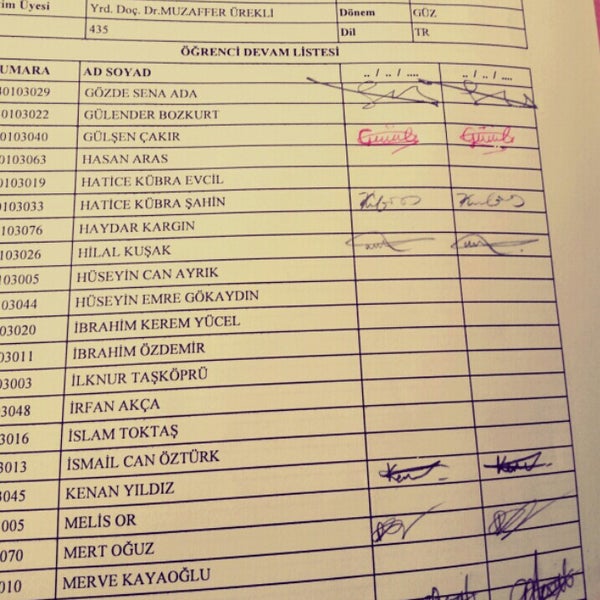 im Üyesi Yrd. Doç. Dr.MUZAFFER ÜREKLİ Dönem GÜZ
435 Dil TR
ÖĞRENCİ DEVAM LİSTESİ
UMARA AD SOYAD .. / .. / .... .. / .. / ....
0103029 GÖZDE SENA ADA
0103022 GÜLENDER BOZKURT
0103040 GÜLŞEN ÇAKIR
0103063 HASAN ARAS
0103019 HATİCE KÜBRA EVCİL
0103033 HATİCE KÜBRA ŞAHİN
0103076 HAYDAR KARGIN
0103026 HİLAL KUŞAK
0103005 HÜSEYİN CAN AYRIK
0103044 HÜSEYİN EMRE GÖKAYDIN
103020 İBRAHİM KEREM YÜCEL
03011 İBRAHİM ÖZDEMİR
03003 İLKNUR TAŞKÖPRÜ
03048 İRFAN AKÇA
3016 İSLAM TOKTAŞ
3013 İSMAİL CAN ÖZTÜRK
3045 KENAN YILDIZ
005 MELİS OR
070 MERT OĞUZ
010 MERVE KAYAOĞLU